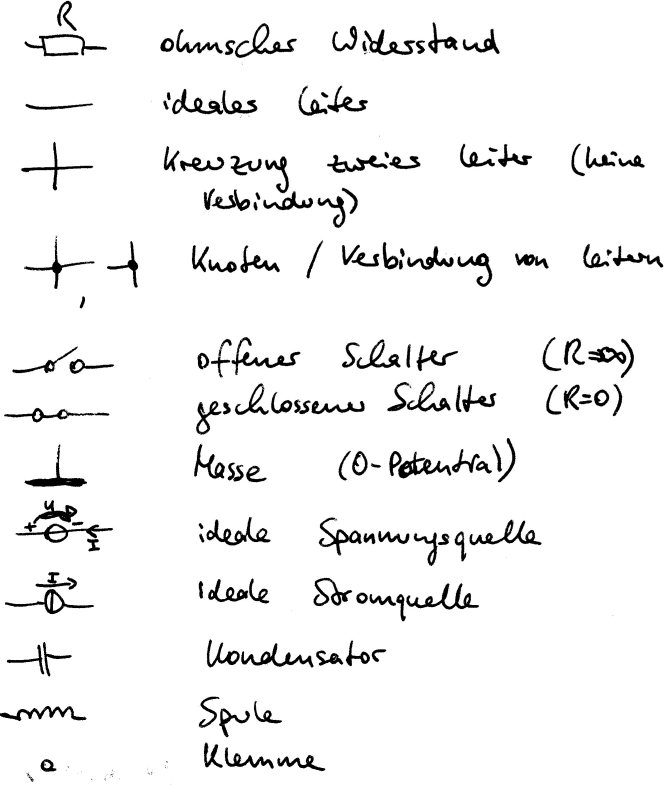 R
ohmscher Widerstand
idealer Leiter
Kreuzung zweier Leiter (keine
Verbindung)
Knoten / Verbindung von Leitern
,
offener Schalter (R=∞)
geschlossener Schalter (R=0)
Masse (0-Potential)
U
+ -
I
ideale Spannungsquelle
I
Ideale Stromquelle
Kondensator
Spule
Klemme